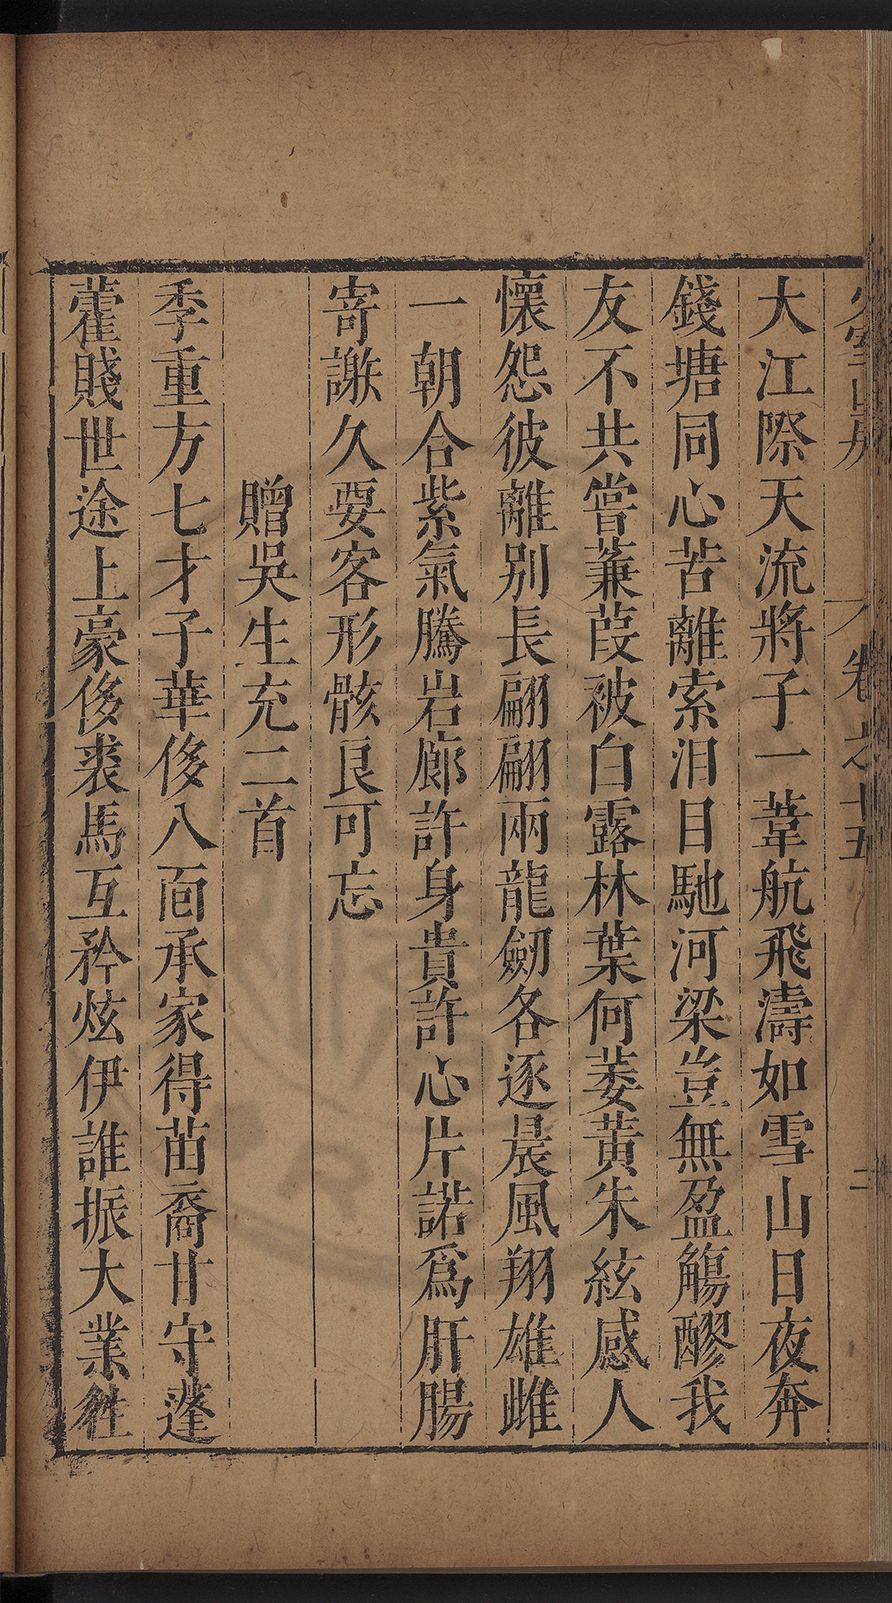 卷之十五
二
大江際天流將子一葦航飛濤如雪山日夜奔
錢塘同心苦離索泪目馳河梁豈無盈觴醪我
友不共嘗蒹葭被白露林葉何萎黃朱絃感人
懷怨彼離別長翩翩兩龍劒各逐晨風翔雄雌
一朝合紫氣騰岩廊許身貴許心片諾爲肝腸
寄謝久要客形骸良可忘
贈吳生充二首
季重方七才子華侈八面承家得苗裔甘守蓬
藿賤世途上豪侈裘馬互矜炫伊誰振大業往